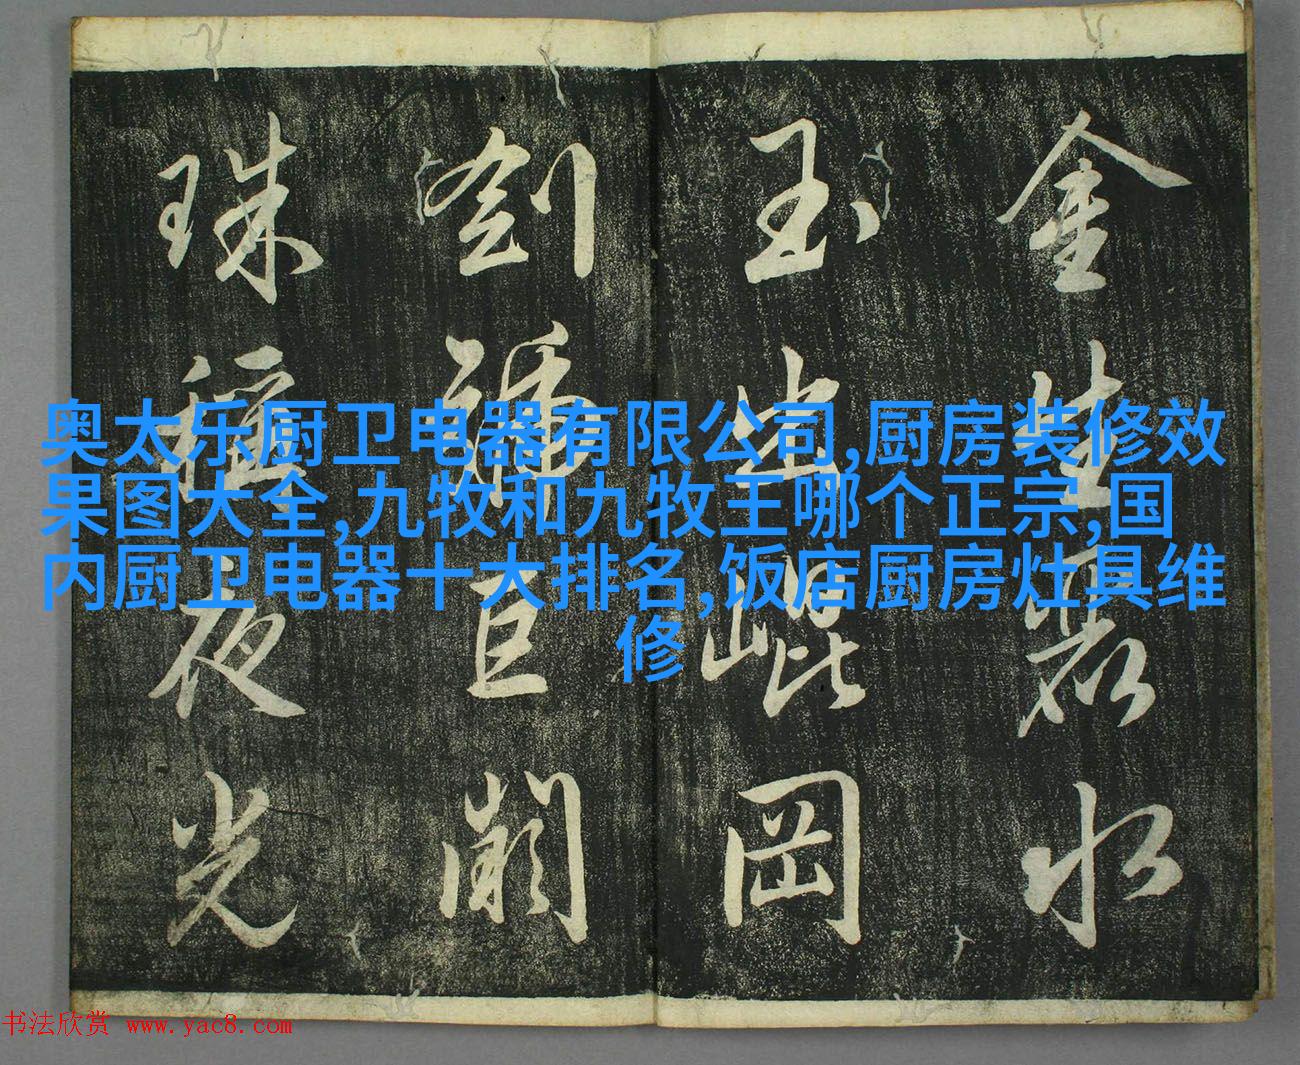 金生麗水
玉出崐岡
劍號巨闕
珠稱夜光
奥太乐厨卫电器有限公司,厨房装修效
果图大全,九牧和九牧王哪个正宗,国
内厨卫电器十大排名,饭店厨房灶具维
修
书法欣赏 www.yac8.com